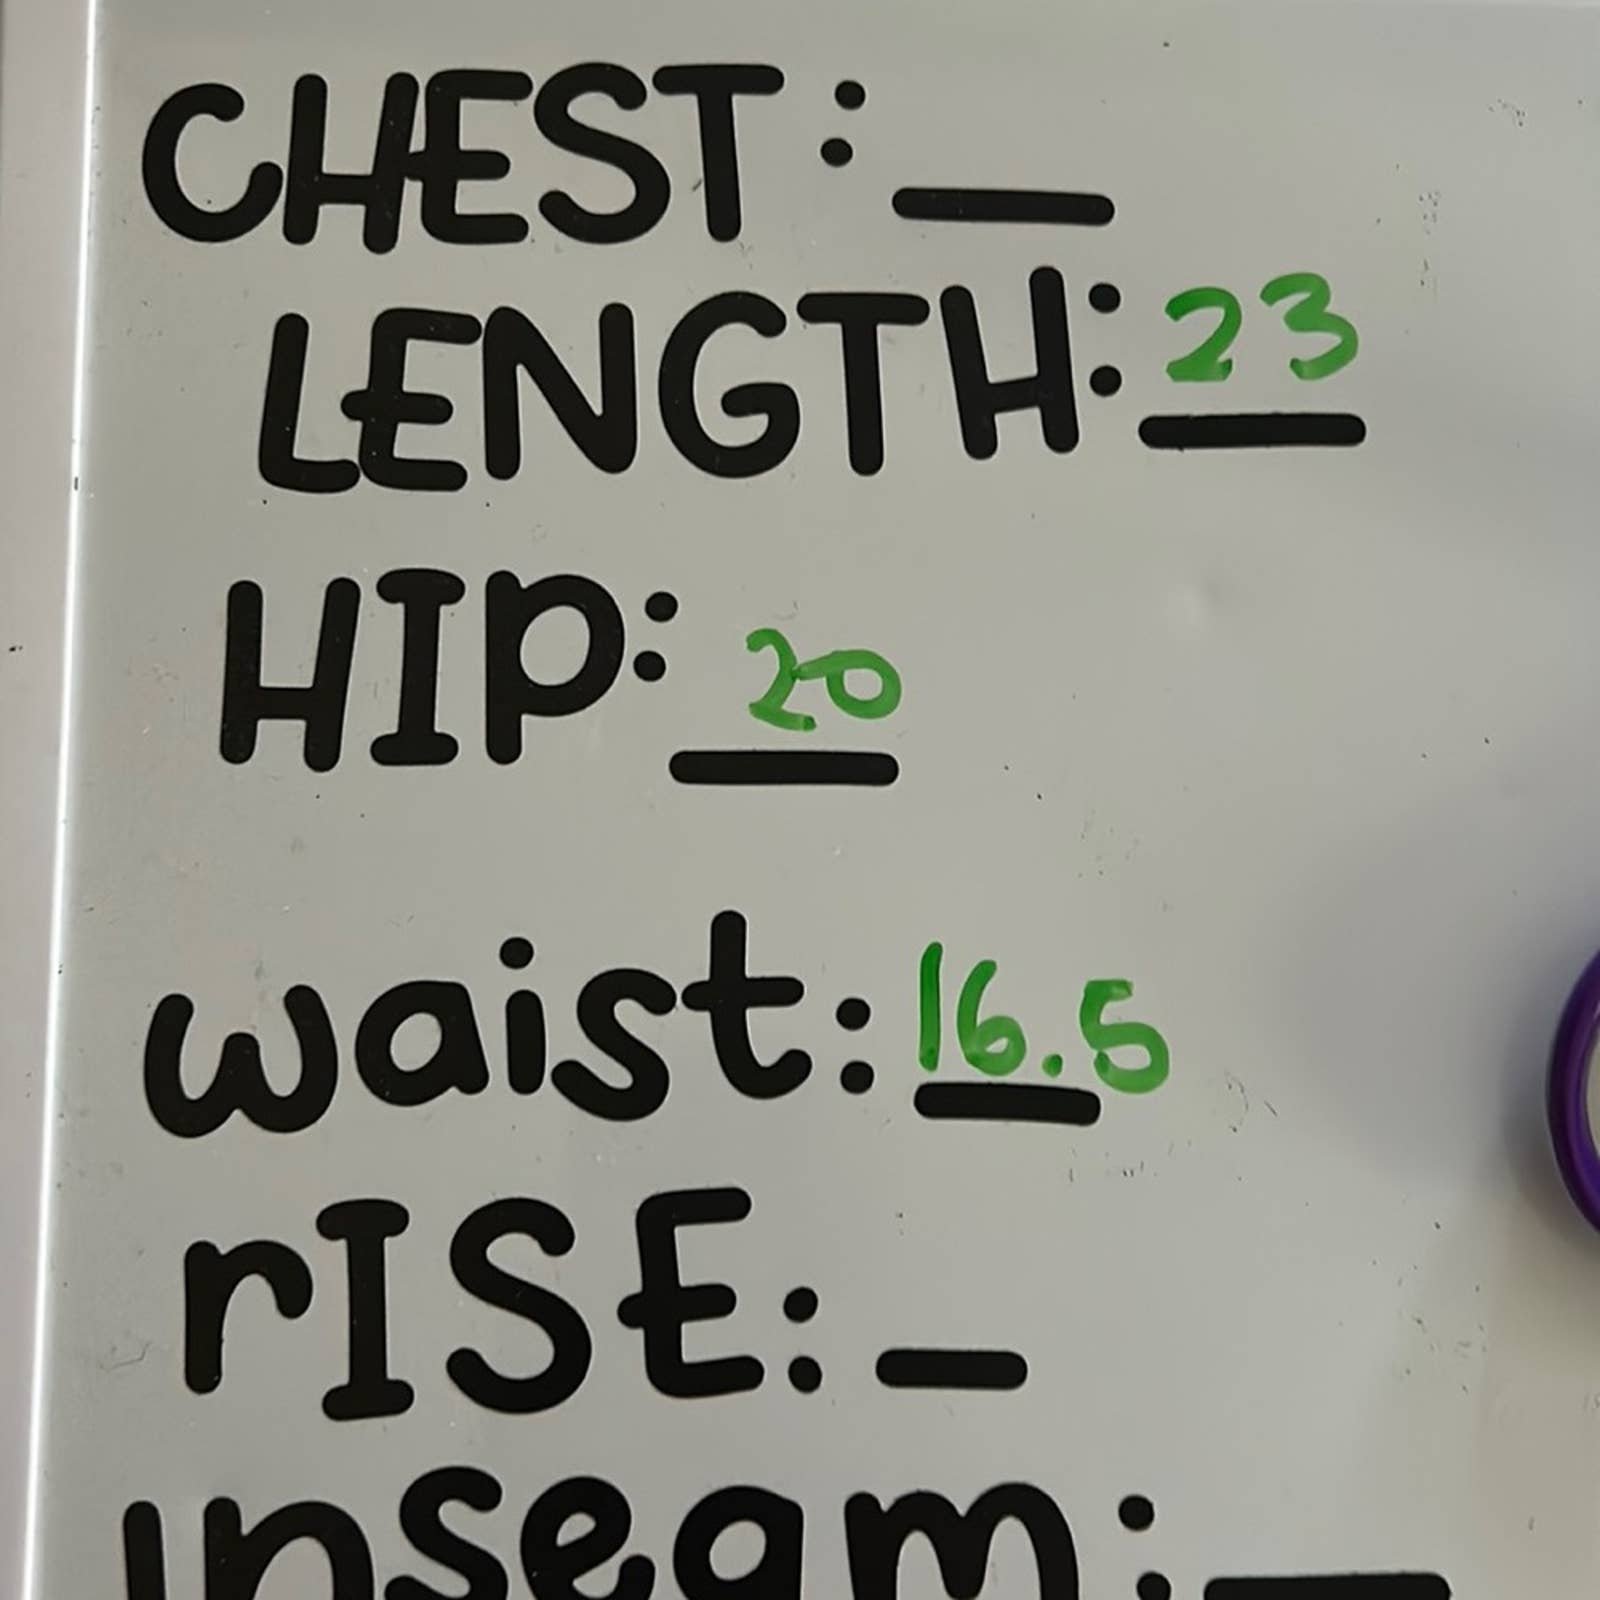 CHEST: __
LENGTH: 23
HIP: 20
waist: 16.5
rISE: _
inseam: __